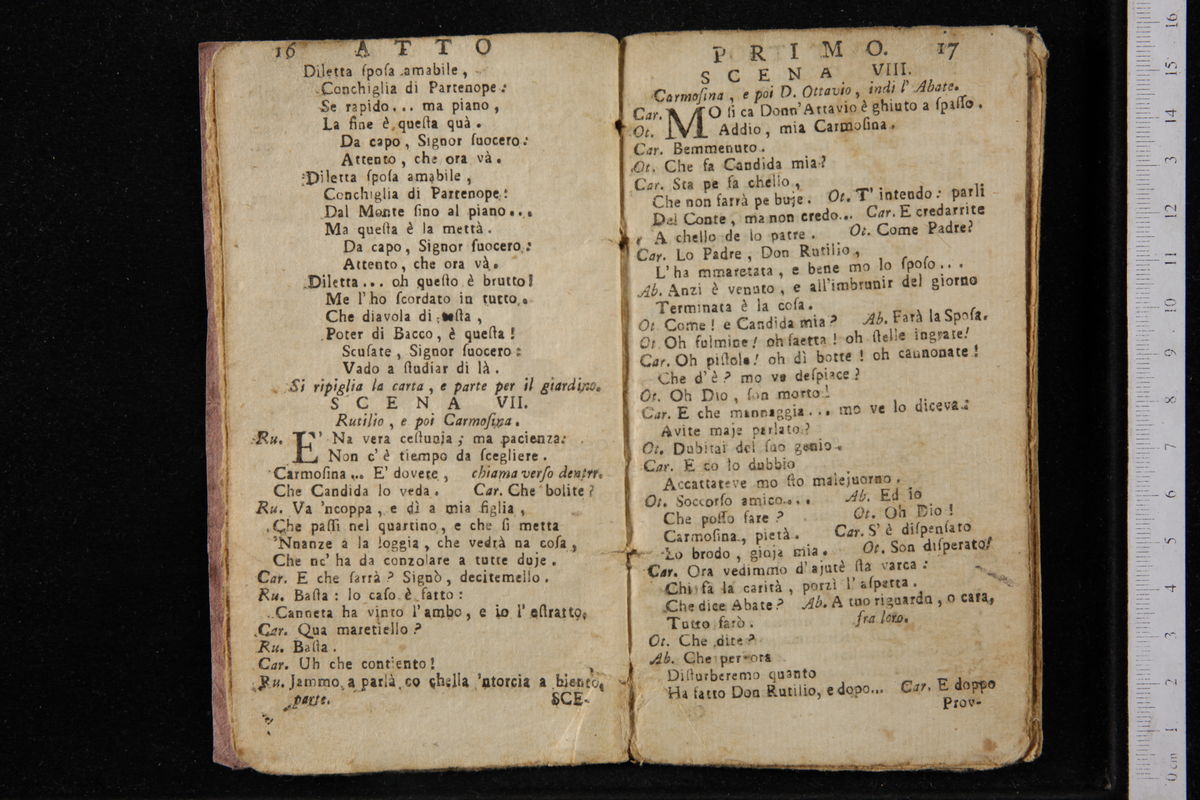 16 ATTO
Diletta ſpoſa amabile,
Conchiglia di Partenope:
Se rapido... ma piano,
La fine è queſta quà.
Da capo, Signor ſuocero:
Attento, che ora và.
Diletta ſpoſa amabile,
Conchiglia di Partenope:
Dal Monte ſino al piano...
Ma queſta è la mettà.
Da capo, Signor ſuocero:
Attento, che ora và.
Diletta... oh queſto è brutto!
Me l'ho ſcordato in tutto.
Che diavola di teſta,
Poter di Bacco, è queſta!
Scuſate, Signor ſuocero:
Vado a ſtudiar di là.
Si ripiglia la carta, e parte per il giardino.
SCENA VII.
Rutilio, e poi Carmoſina.
Ru. E' Na vera ceſtunia; ma pacienza:
Non c'è tiempo da ſcegliere.
Carmoſina... E' dovete, chiama verſo dentrr.
Che Candida lo veda. Car. Che bolite?
Ru. Va 'ncoppa, e dì a mia figlia,
Che paſſi nel quartino, e che ſi metta
'Nnanze a la loggia, che vedrà na coſa,
Che nc' ha da conzolare a tutte duje.
Car. E che ſarrà? Signò, decitemello.
Ru. Baſta: lo caſo è fatto:
Canneta ha vinto l'ambo, e io l'eſtratto.
Car. Qua maretiello?
Ru. Baſta.
Car. Uh che contiento!
Ru. Jammo a parlà co chella 'ntorcia a biento.
parte. SCE-
PRIMO. 17
SCENA VIII.
Carmoſina, e poi D. Ottavio, indi l'Abate.
Car. MO ſi ca Donn'Attavio è ghiuto a ſpaſſo.
Ot. Addio, mia Carmoſina.
Car. Bemmenuto.
Ot. Che fa Candida mia?
Car. Sta pe fa chello,
Che non farrà pe buje. Ot. T' intendo: parli
Del Conte, ma non credo... Car. E credarrite
A chello de lo patre. Ot. Come Padre?
Car. Lo Padre, Don Rutilio,
L'ha mmaretata, e bene mo lo ſpoſo...
Ab. Anzi è venuto, e all'imbrunir del giorno
Terminata è la coſa.
Ot. Come! e Candida mia? Ab. Farà la Spoſa.
Ot. Oh fulmine! oh ſaetta! oh ſtelle ingrate!
Car. Oh piſtole! oh dì botte! oh cannonate!
Che d'è? mo ve deſpiace?
Ot. Oh Dio, ſon morto!
Car. E che mannaggia... mo ve lo diceva:
Avite maje parlato?
Ot. Dubitai del ſuo genio.
Car. E co lo dubbio
Accattateve mo ſto malejuorno.
Ot. Soccorſo amico.... Ab. Ed io
Che poſſo fare? Ot. Oh Dio!
Carmoſina, pietà. Car. S' è diſpenſato
Lo brodo, gioja mia. Ot. Son diſperato!
Car. Ora vedimmo d'ajutè ſta varca:
Chi fà la carità, porzì l'aſpetta.
Che dice Abate? Ab. A tuo riguardo, o cara,
Tutto farò. fra loro.
Ot. Che dite?
Ab. Che per ora
Diſturberemo quanto
Ha fatto Don Rutilio, e dopo... Car. E doppo
Prov-